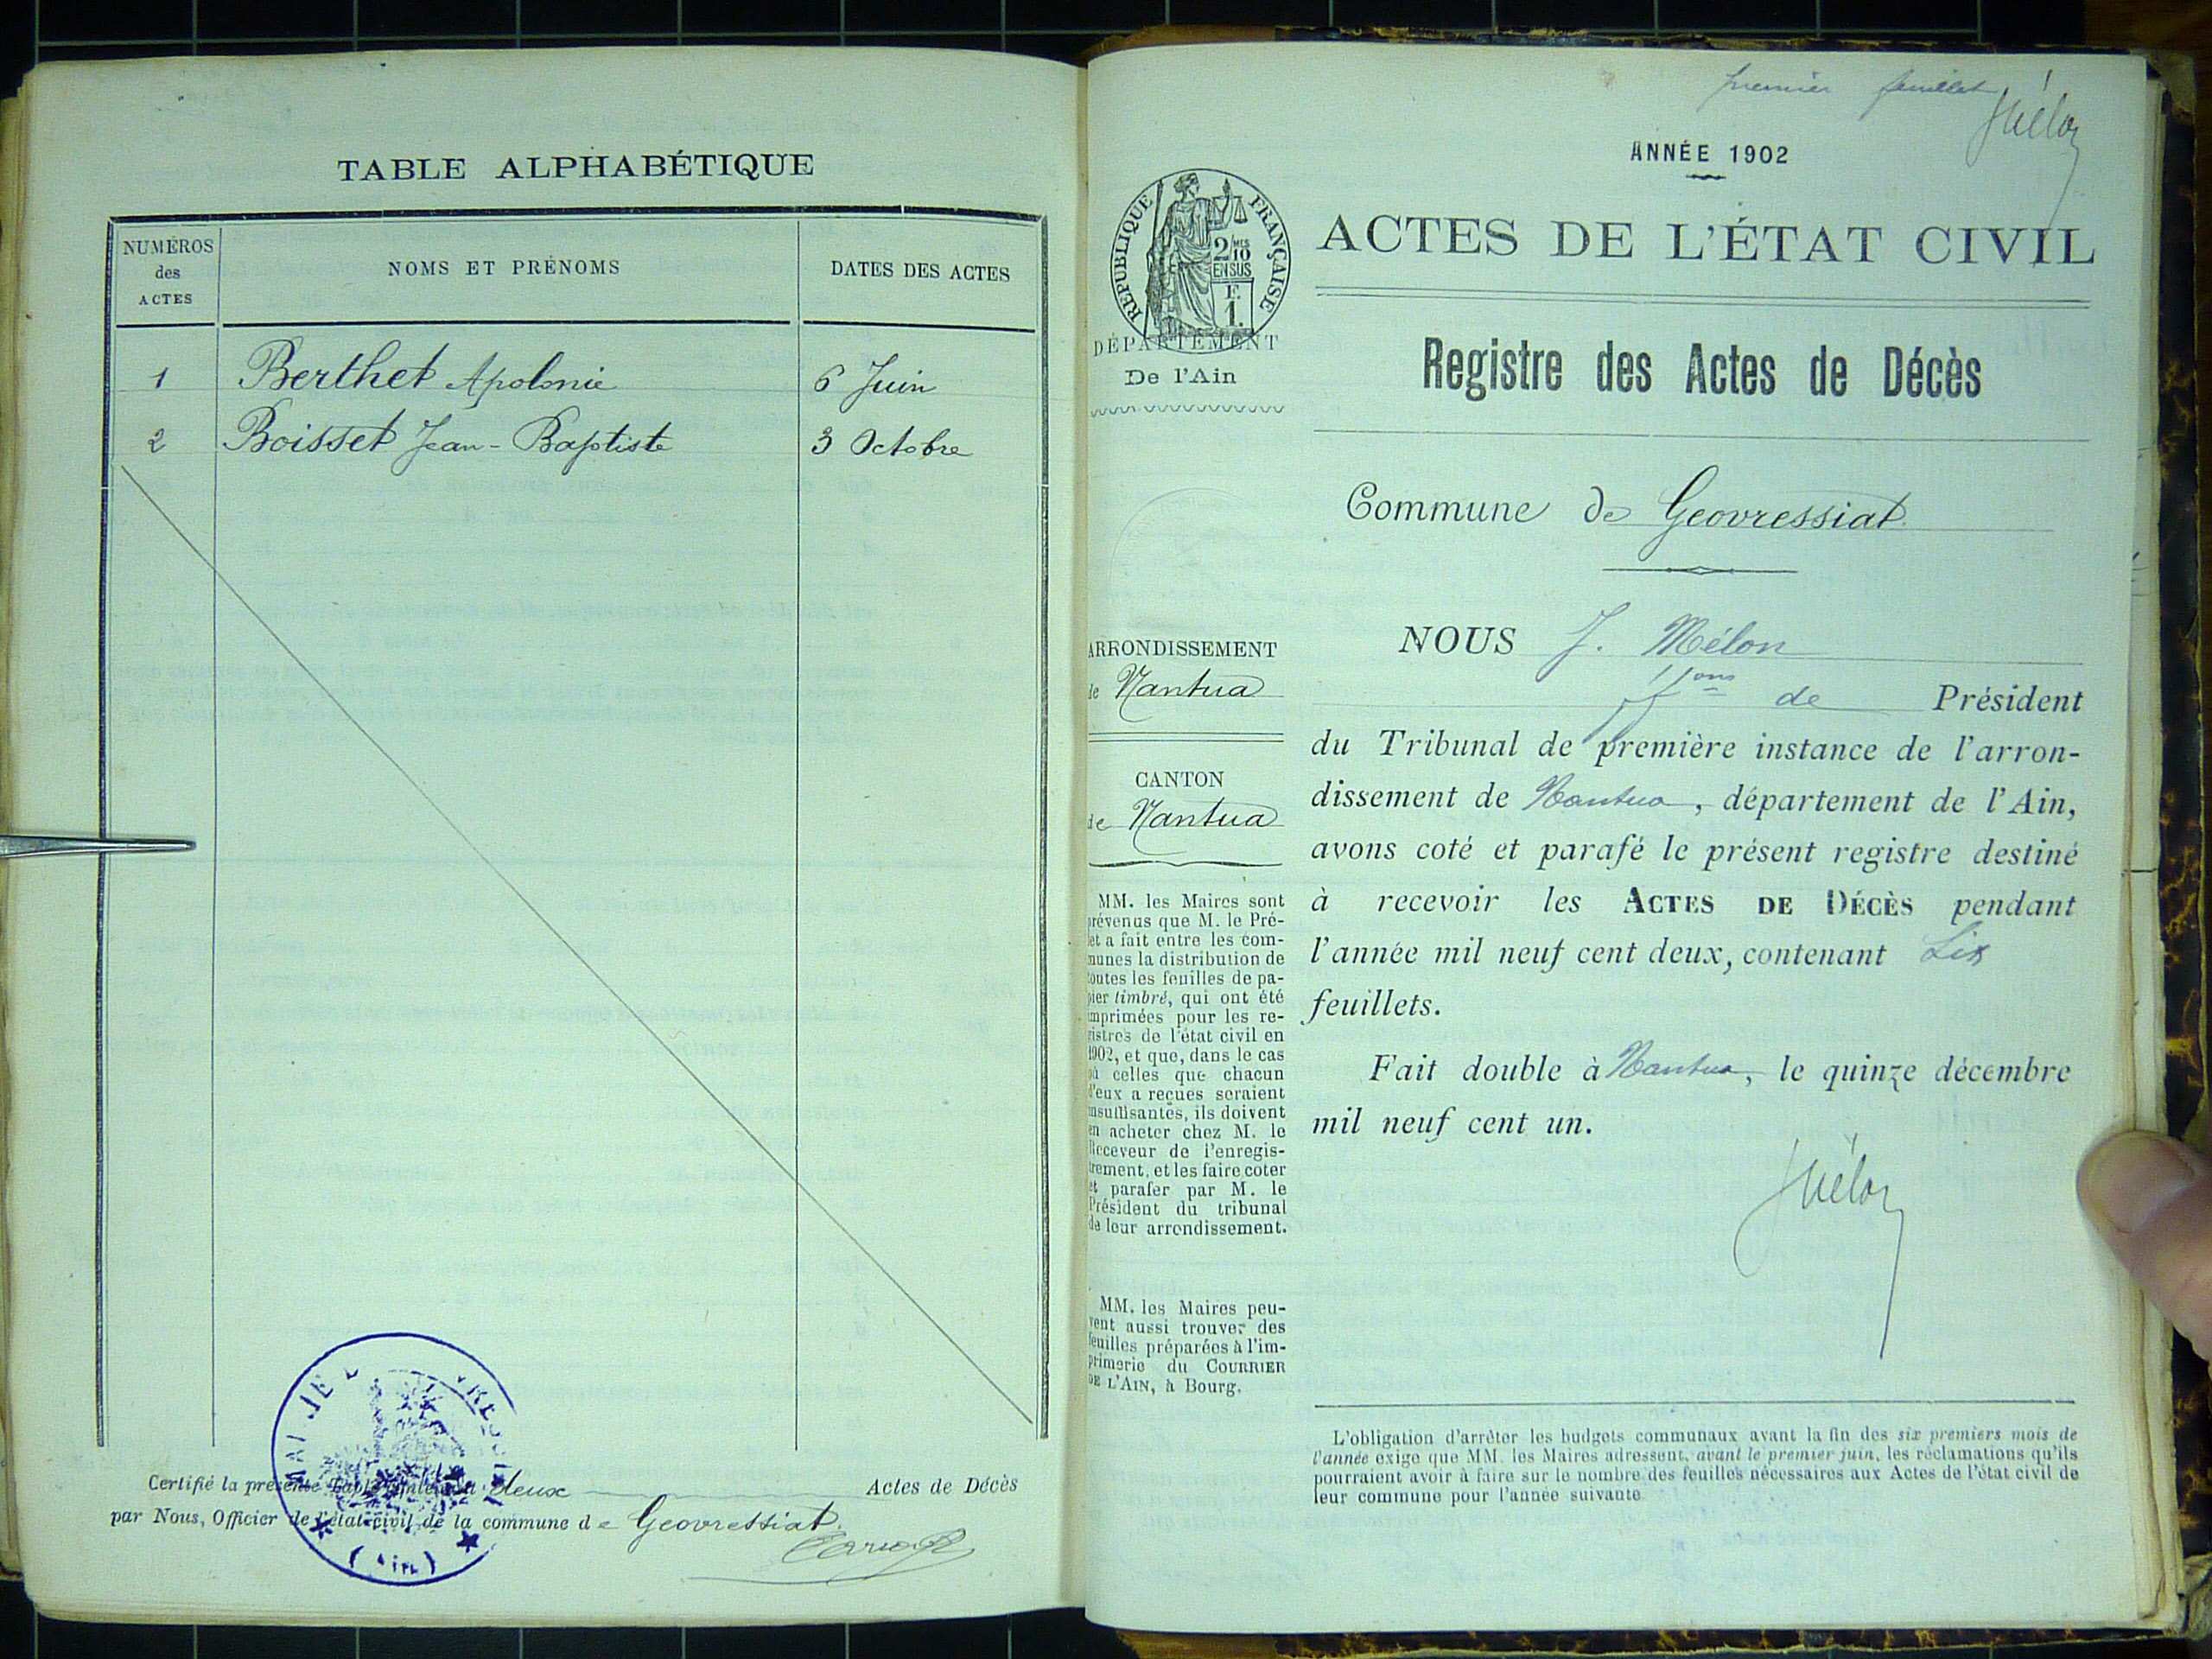 TABLE ALPHABÉTIQUE
NUMÉROS
des
ACTES
NOMS ET PRÉNOMS
DATES DES ACTES
1 Berthet Apolonie 6 Juin
2 Boisset Jean-Baptiste 3 Octobre
Certifié la présente deux Actes de Décès
par Nous, Officier de l'état-civil de la commune de Geovressiat.
(Ain)
premier feuillet
ANNÉE 1902
RÉPUBLIQUE FRANÇAISE
2/10
EN SUS
F.
1.
DÉPARTEMENT
De l'Ain
ARRONDISSEMENT
de Nantua
CANTON
de Nantua
MM. les Maires sont
prévenus que M. le Pré-
fet a fait entre les com-
munes la distribution de
toutes les feuilles de pa-
pier timbré, qui ont été
imprimées pour les re-
gistres de l'état civil en
1902, et que, dans le cas
où celles que chacun
d'eux a reçues seraient
insuffisantes, ils doivent
en acheter chez M. le
Receveur de l'enregis-
trement, et les faire coter
et parafer par M. le
Président du tribunal
de leur arrondissement.
MM. les Maires peu-
vent aussi trouver des
feuilles préparées à l'im-
primerie du COURRIER
DE L'AIN, à Bourg.
ACTES DE L'ÉTAT CIVIL
Registre des Actes de Décès
Commune de Geovressiat
NOUS J. Mélon
de Président
du Tribunal de première instance de l'arron-
dissement de Nantua, département de l'Ain,
avons coté et parafé le présent registre destiné
à recevoir les ACTES DE DÉCÈS pendant
l'année mil neuf cent deux, contenant Six
feuillets.
Fait double à Nantua, le quinze décembre
mil neuf cent un.
JMélon
L'obligation d'arrêter les budgets communaux avant la fin des six premiers mois de
l'année exige que MM. les Maires adressent, avant le premier juin, les réclamations qu'ils
pourraient avoir à faire sur le nombre des feuilles nécessaires aux Actes de l'état civil de
leur commune pour l'année suivante.